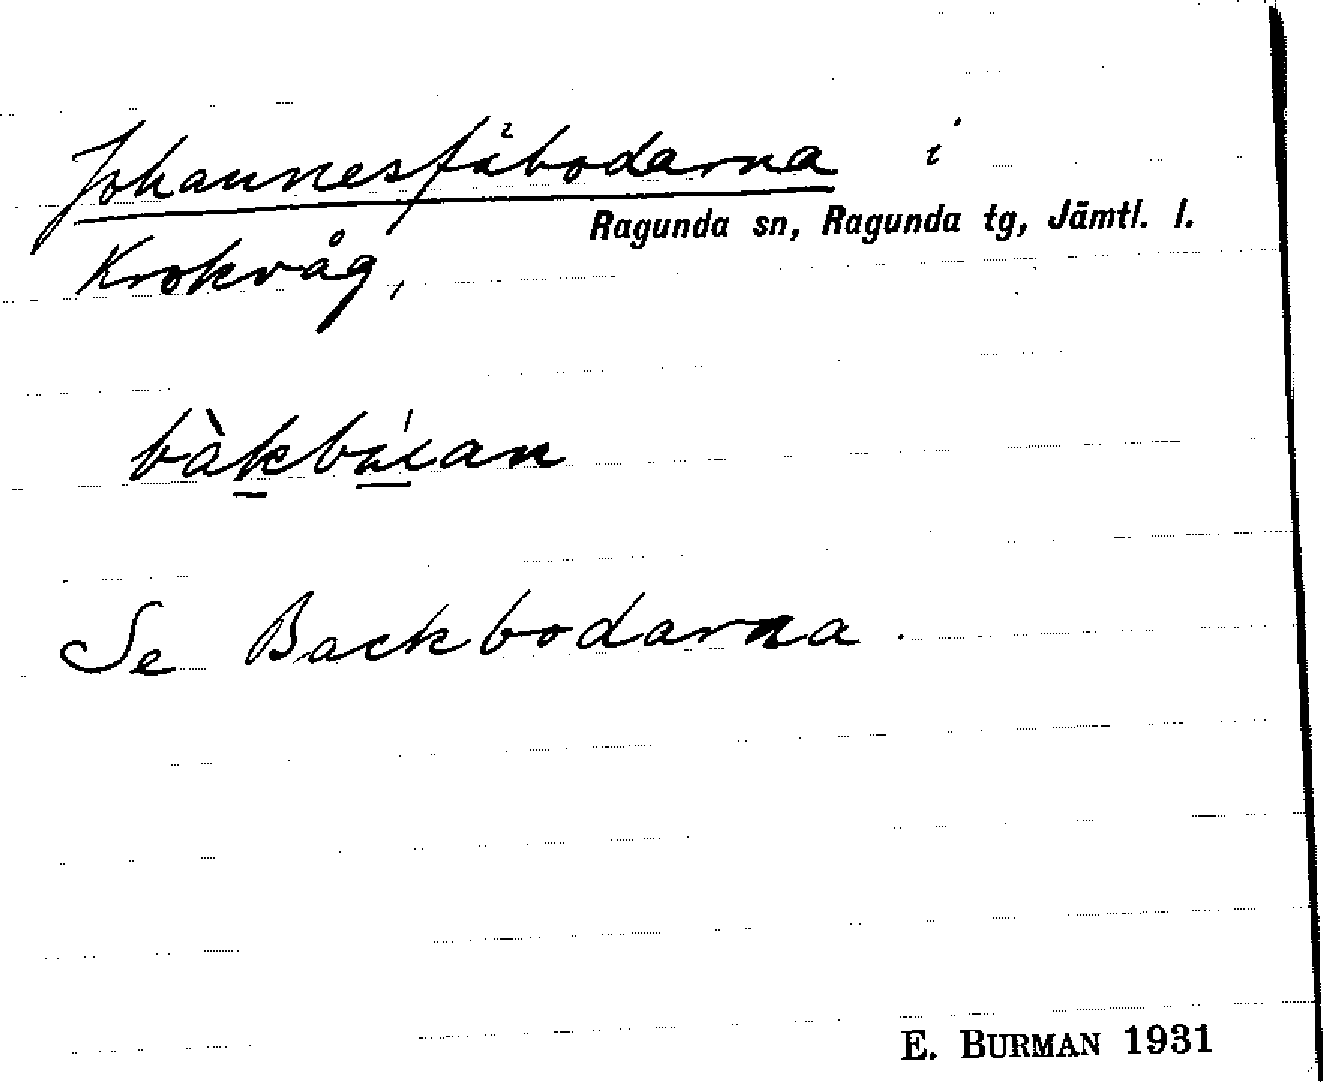 Johannesfäbodarna i
Ragunda sn, Ragunda tg, Jämtl. l.
Krokvåg,
Se Backbodarna.
E. BURMAN 1931